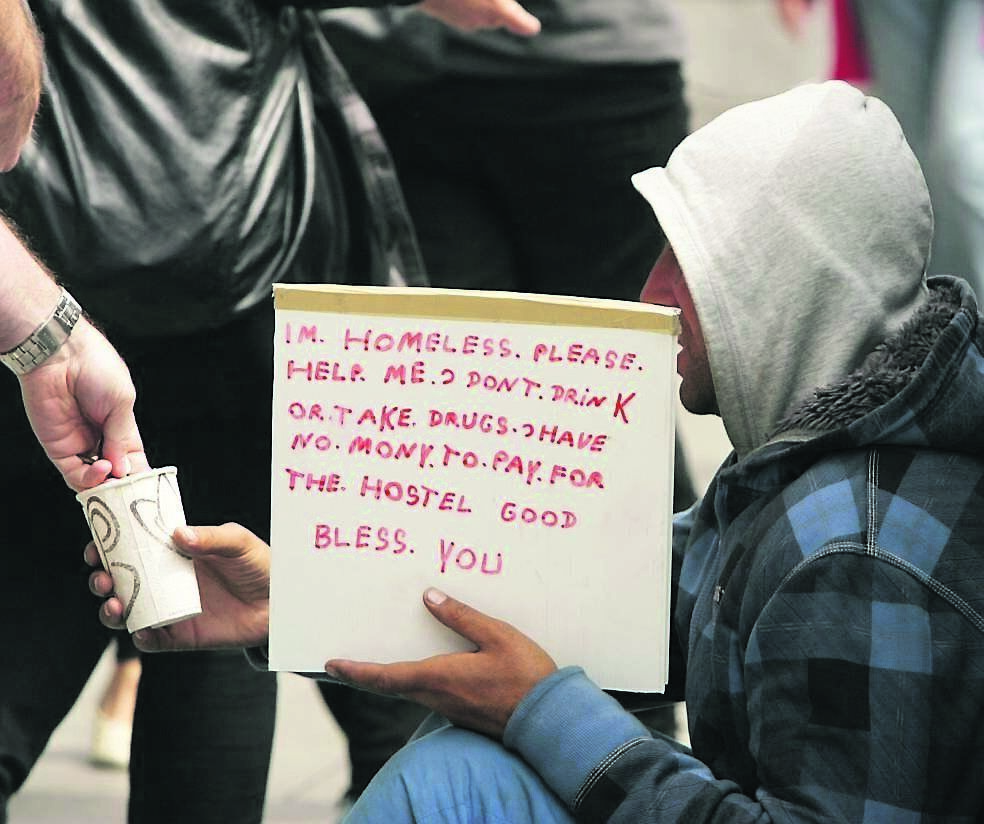 IM. HOMELESS. PLEASE.
HELP. ME. I DONT. DRINK
OR. TAKE. DRUGS. I HAVE
NO. MONY. TO. PAY. FOR
THE. HOSTEL GOOD
BLESS. YOU